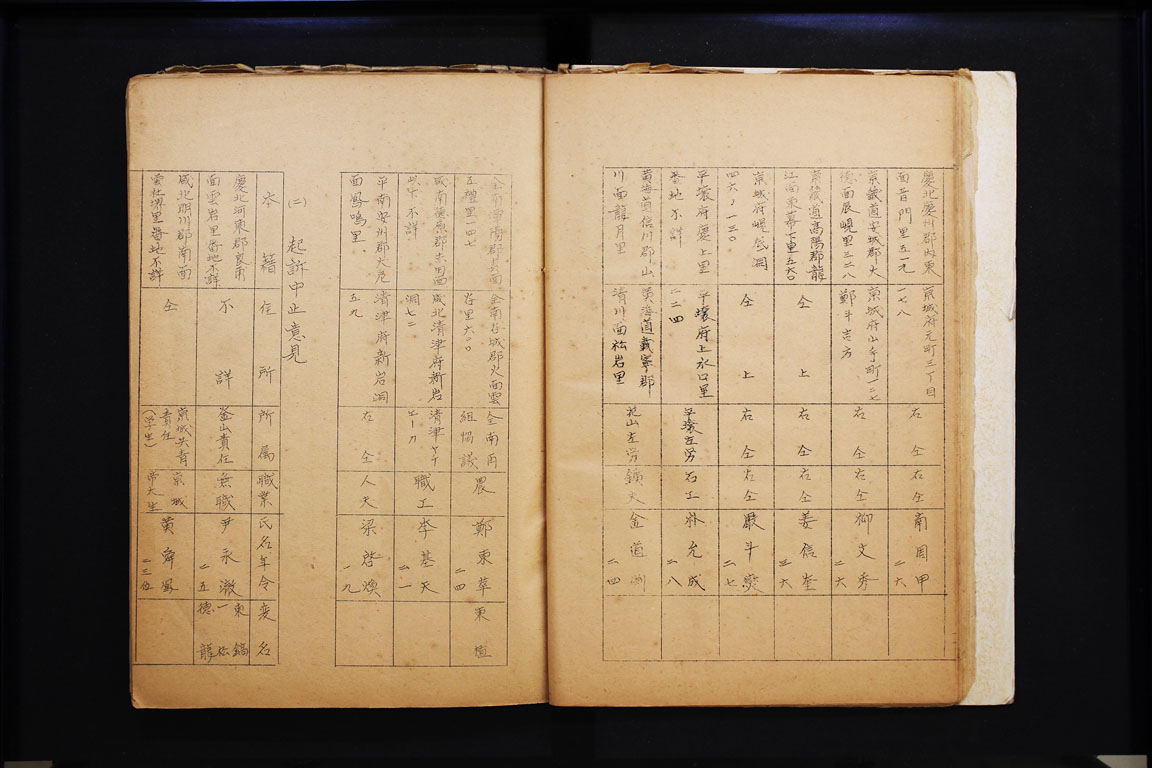 慶北慶州郡内東
面普門里五一九
京城府元町三丁目
一七八
右仝
右仝
南周甲
二六
京畿道安城郡大
德面展峴里三二八
京城府山手町一二七
鄭斗吉方
右仝
右仝
柳文秀
二六
京畿道高陽郡龍
江面東幕下里五六〇
仝上
右仝
右仝
姜信奎
三六
京城府峴底洞
四六ノ一三〇
仝上
右仝
右仝
嚴斗燮
二七
平壤府慶上里
番地不詳
平壤府上水口里
二二四
平壤左労
石工
朴允成
二八
黃海道信川郡山
川面龍月里
黃海道載寧郡
清川面社岩里
花山左労
鑛夫
金道
二四
五禮里一四七
全南谷城郡火面雲
谷里六〇〇
全南再
組協議
農
鄭東華
二四
東
以下不詳
咸北清津府新岩
洞七二
清津
職工
李基天
二一
平南安州郡大尼
面鳳鳴里
清津府新岩洞
五九
右仝
人夫
梁啓煥
一九
(二)起訴中止意見
本籍
住所
所属
職業
氏名年令
変名
慶北河東郡良甫
面雲岩里番地不詳
不詳
釜山責任
無職
尹永澈
二五
東鎬
一松
德龍
咸北明川郡南面
雲社堺里番地不詳
仝
京城共青
責任
(学生)
京城
帝大生
黃舜鳳
二三位